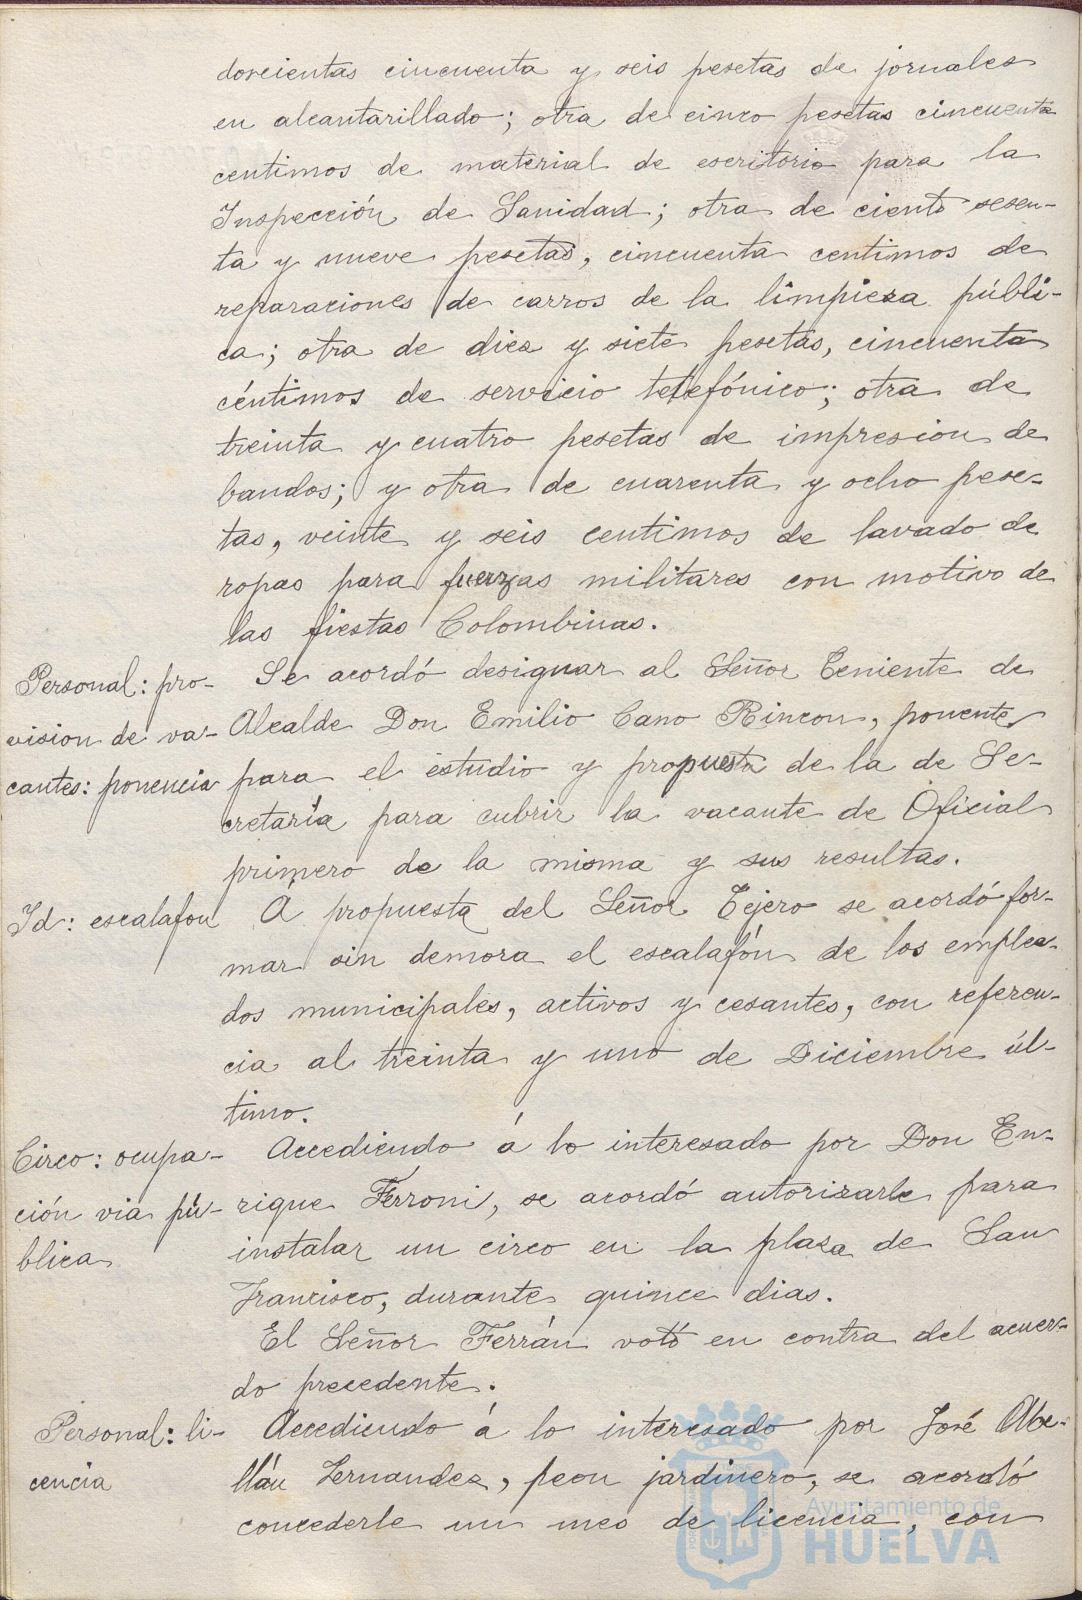 dorcientas cincuenta y seis pesetas de jornales
en alcantarillado; otra de cinco pesetas cincuenta
centimos de material de escritorio para la
Inspección de Sanidad; otra de ciento sesen-
ta y nueve pesetas, cincuenta centimos de
reparaciones de carros de la limpieza públi-
ca; otra de diez y siete pesetas, cincuenta
céntimos de servicio telefónico; otra de
treinta y cuatro pesetas de impresion de
bandos; y otra de cuarenta y ocho pese-
tas, veinte y seis centimos de lavado de
ropas para fuerzas militares con motivo de
las fiestas Colombinas.
Personal: pro-
vision de va-
cantes: ponencia
Se acordó designar al Señor Teniente de
Alcalde Don Emilio Cano Rincon, ponente
para el estudio y propuesta de la de Se-
cretaría para cubrir la vacante de Oficial
primero de la misma y sus resultas.
Id: escalafon
Á propuesta del Señor Tejero se acordó for-
mar sin demora el escalafón de los emplea-
dos municipales, activos y cesantes, con referen-
cia al treinta y uno de Diciembre úl-
timo.
Circo: ocupa-
ción via pú-
blica
Accediendo á lo interesado por Don En-
rique Ferroni, se acordó autorizarle para
instalar un circo en la plaza de San
Francisco, durante quince dias.
El Señor Ferrán votó en contra del acuer-
do precedente.
Personal: li-
cencia
Accediendo á lo interesado por José Abe-
llán Hernandez, peon jardinero, se acordó
concederle un mes de licencia, con
Ayuntamiento de
HUELVA